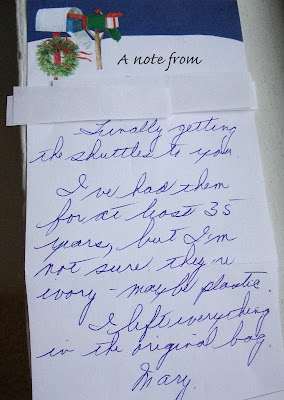 A note from
Finally getting
the shuttles to you.
I've had them
for at least 35
years, but I'm
not sure they're
ivory - maybe plastic.
I left everything
in the original bag.
Mary.